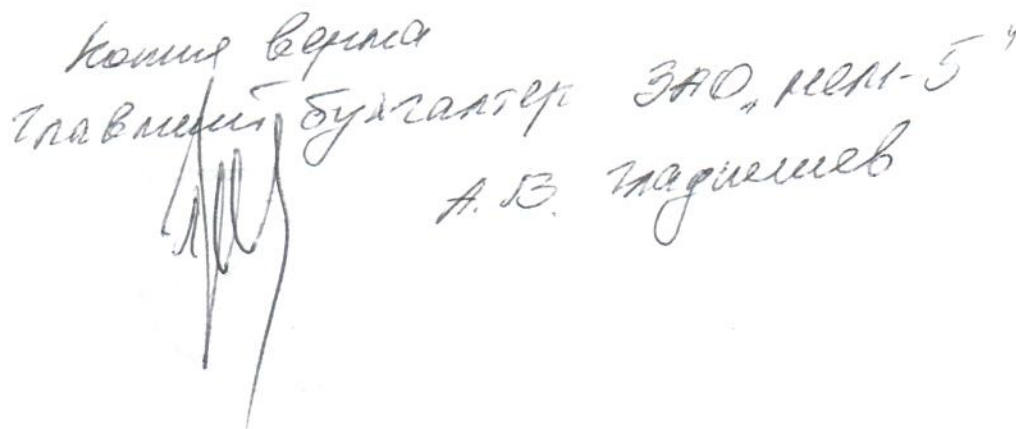 Копия верна
Главный бухгалтер ЗАО „МЕМ-5"
А.В. Гладышев